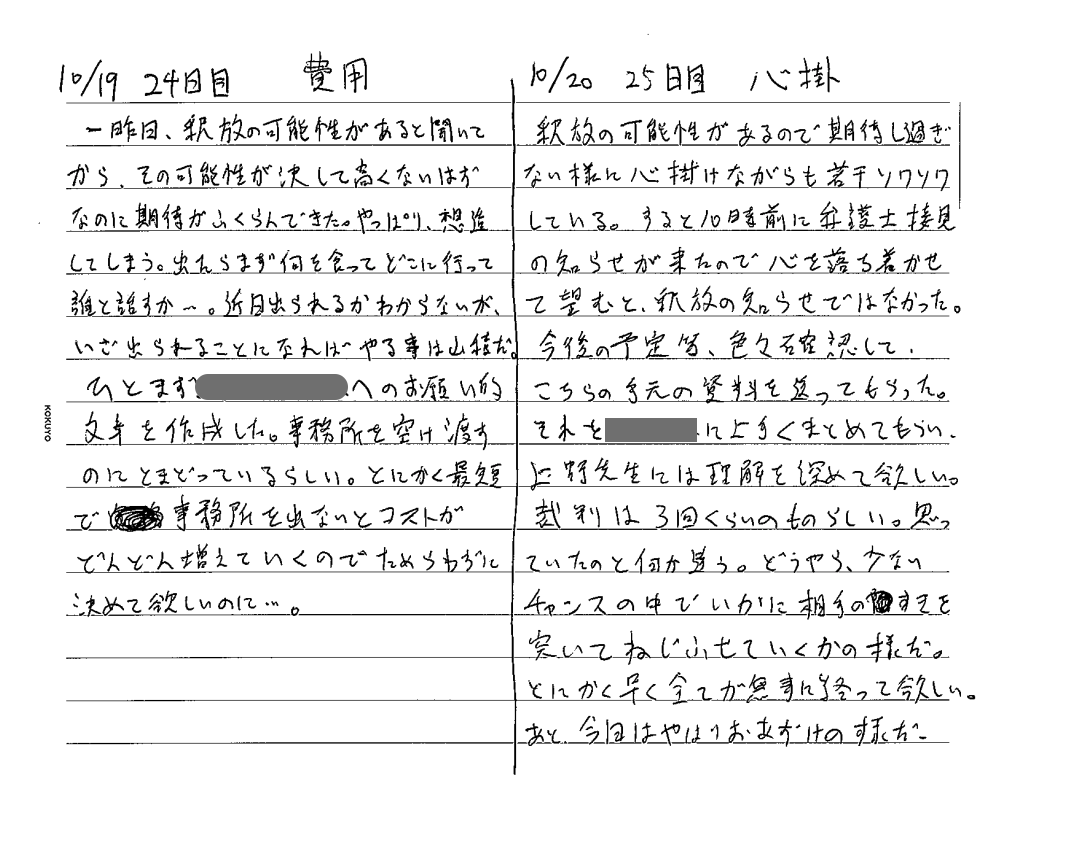 10/19 24日目 費用
一昨日、釈放の可能性があると聞いて
から、その可能性が決して高くないはず
なのに期待がふくらんできた。やっぱり、想像
してしまう。出たらまず何を食ってどこに行って
誰と話すか…。近日出られるかわからないが、
いざ出られることになればやる事は山積だ。
ひとまず へのお願い的
文章を作成した。事務所を空け渡す
のにとまどっているらしい。とにかく最短
で 事務所を出ないとコストが
どんどん増えていくのでためらわずに
決めて欲しいのに…。
KOKUYO
10/20 25日目 心掛
釈放の可能性があるので期待し過ぎ
ない様に心掛けながらも若干ソワソワ
している。すると10時前に弁護士接見
の知らせが来たので心を落ち着かせ
て望むと、釈放の知らせではなかった。
今後の予定等、色々確認して、
こちらの手元の資料を送ってもらった。
それを に上手くまとめてもらい、
上野先生には理解を深めて欲しい。
裁判は3回くらいのものらしい。思っ
ていたのと何か違う。どうやら、少ない
チャンスの中でいかに相手の すきを
突いてねじふせていくかの様だ。
とにかく早く全てが無事に終って欲しい。
あと、今回はやはりおあずけの様だ。